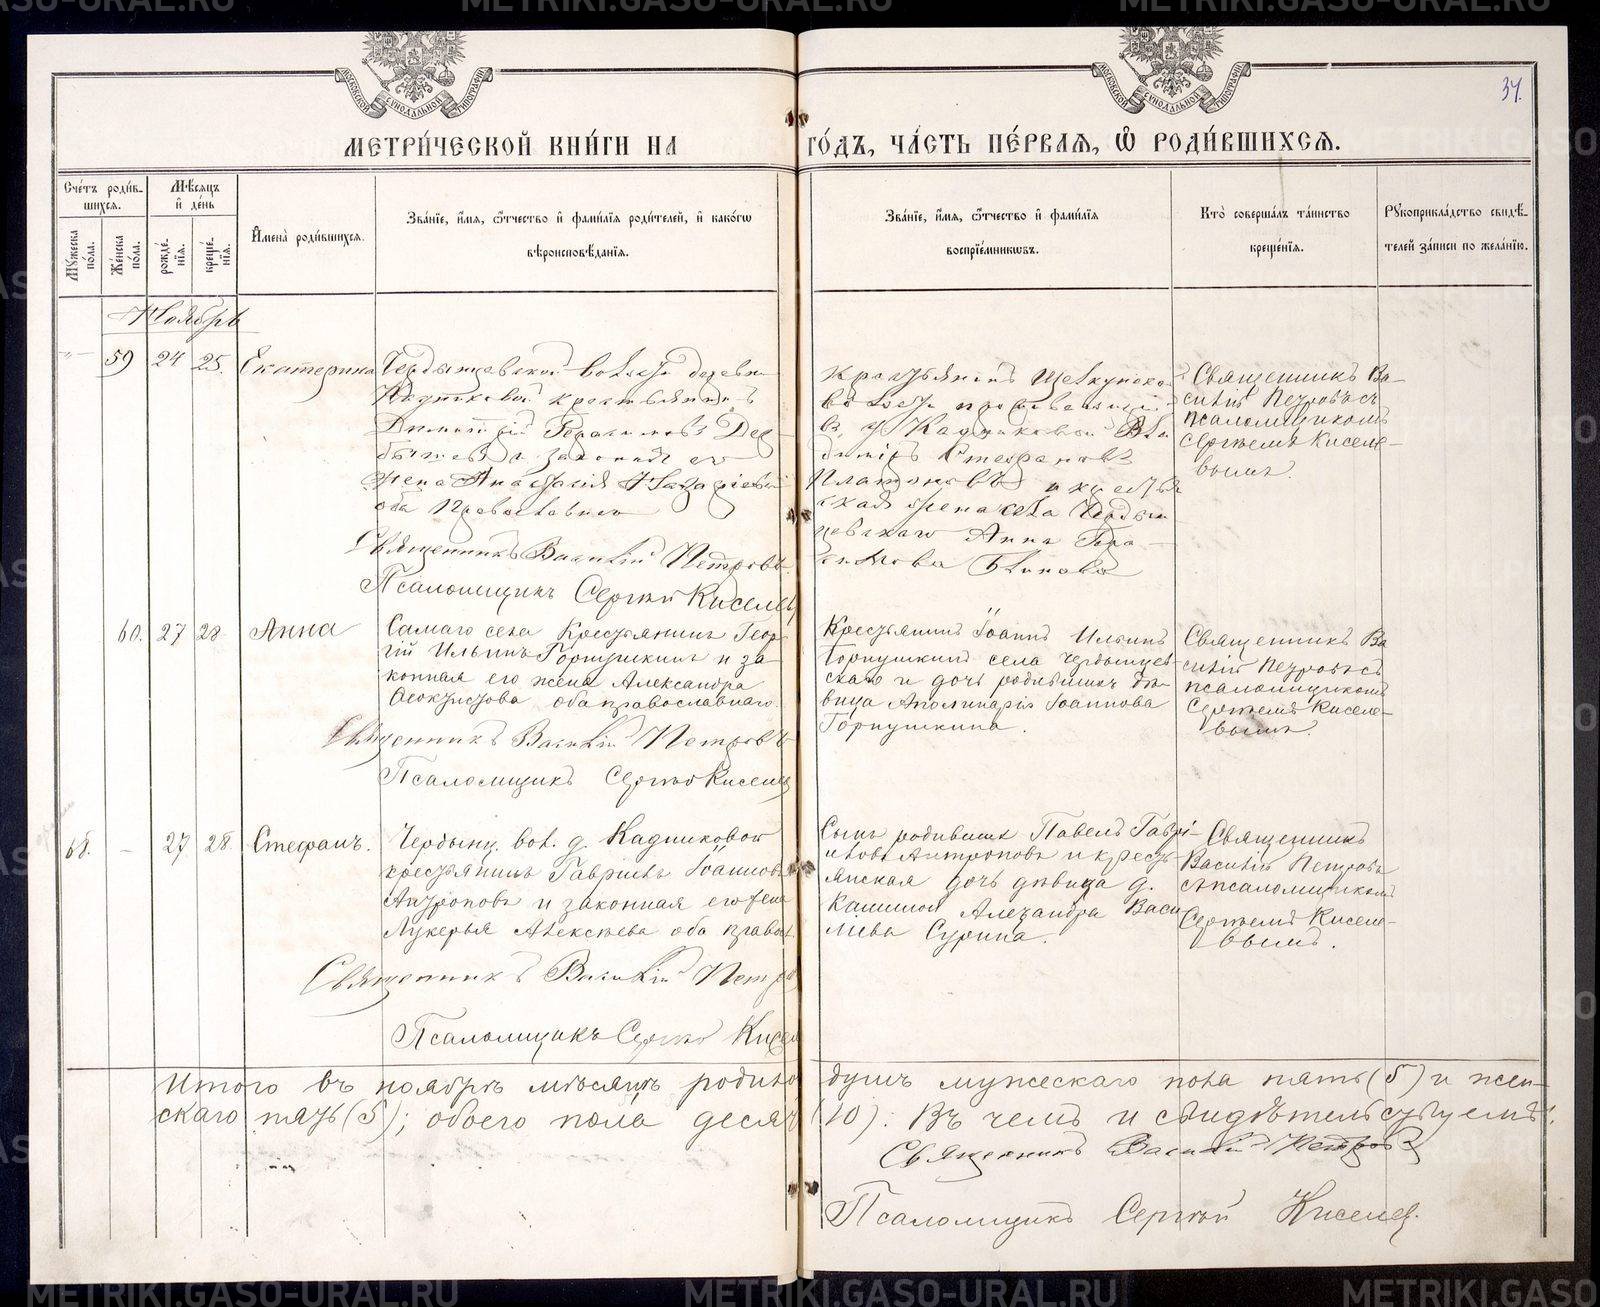 METRIKI.GASO-URAL.RU
37.
МОСКОВСКОЙ СѴНОДАЛЬНОЙ ТИПОГРАФІИ
МЕТРИ́ЧЕСКОЙ КНИ́ГИ НА ГО́ДЪ, ЧА́СТЬ ПЕ́РВАЯ, Ѡ РОДИ́ВШИХСЯ.
Сче́тъ роди́в-
шихся.
Мѣ́сяцъ
и́ де́нь
Мꙋ́жеска по́ла.
Же́нска по́ла.
рожде́-
нїя.
креще́-
нїя.
И҆мена̀ роди́вшихся.
Зва́нїе, и҆́мя, ѻ҆́тчество и҆ фами́лїя роди́телей, и҆ како́гѡ
вѣроисповѣ́данїя.
Зва́нїе, и҆́мя, ѻ҆́тчество и҆ фами́лїя
воспрїе́мникѡвъ.
Кто̀ соверша́лъ та́инство
креще́нїя.
Рꙋкоприкла́дство свидѣ́-
телей за́писи по жела́нїю.
Ноябрь
59 24 25. Екатерина
Чердынцевской волости деревни
крестьянинъ
Димитрій Герасимовъ
и законная его
жена Анастасія
оба Православнаго
Священникъ Василій Петровъ
Псаломщикъ Сергѣй Киселев
Крестьянинъ Щелкунской
волости
Кадниковой Вла
диміръ Стефановъ
Платоновъ и крестья
нская жена села Черды
цевскаго Анна Гера
симова
Священникъ Ва-
силій Петровъ съ
псаломщикомъ
Сергѣемъ Киселе-
вымъ.
60. 27 28. Анна
Самаго села Крестьянинъ Геор
гій Ильинъ Горнушкинъ и за-
конная его жена Александра
Ѳеоктистова оба православнаго.
Священникъ Василій Петровъ
Псаломщикъ Сергѣй Киселев
Крестьянинъ Іоаннъ Ильинъ
Горнушкинъ села Чердынцев
скаго и дочь родившихъ дѣ-
вица Аполинарія Іоаннова
Горнушкина.
Священникъ Ва
силій Петровъ съ
псаломщикомъ
Сергѣемъ Киселе-
вымъ.
68. - 27 28. Стефанъ.
Чердынц. вол. д. Кадниковой
крестьянинъ Гавріилъ Іоанновъ
Антроповъ и законная его жена
Лукерья Алексѣева оба правосл
Священникъ Василій Петро
Псаломщикъ Сергѣй Кисел
Сынъ родившихъ Павелъ Гаврі-
иловъ Антроповъ и кресть
янская дочь дѣвица д.
Александра Васи
льева Сурина.
Священникъ
Василій Петровъ
съ псаломщикомъ
Сергѣемъ Киселе-
вымъ.
Итого въ ноябрѣ мѣсяцѣ родило душъ мужескаго пола пять (5) и жен-
скаго пять (5); обоего пола десять (10). Въ чемъ и свидѣтельствуемъ:
Священникъ Василій Петровъ
Псаломщикъ Сергѣй Киселев.
METRIKI.GASO-URAL.RU